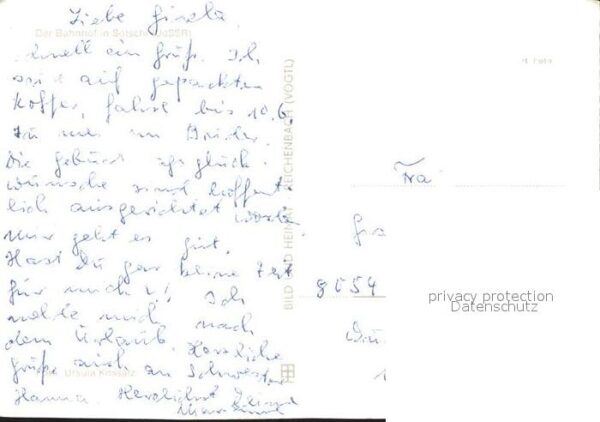 Liebe Gisela
Der Bahnhof in Sotschi (UdSSR)
schnell ein Gruß. Ich
auf gepackten
Koffer, fahre bis 10.6.
zu
Die Geburtstagsglück-
wünsche sind hoffent-
lich ausgerichtet worden.
Mir geht es gut.
Hast Du gar keine Zeit
für mich?! Ich
melde mich nach
dem Urlaub. Herzliche
Grüße auch an Schwester
Hanna. Herzlichst Deine
Ursula
BILD UND HEIMAT REICHENBACH (VOGTL)
Fra
8054
privacy protection
Datenschutz